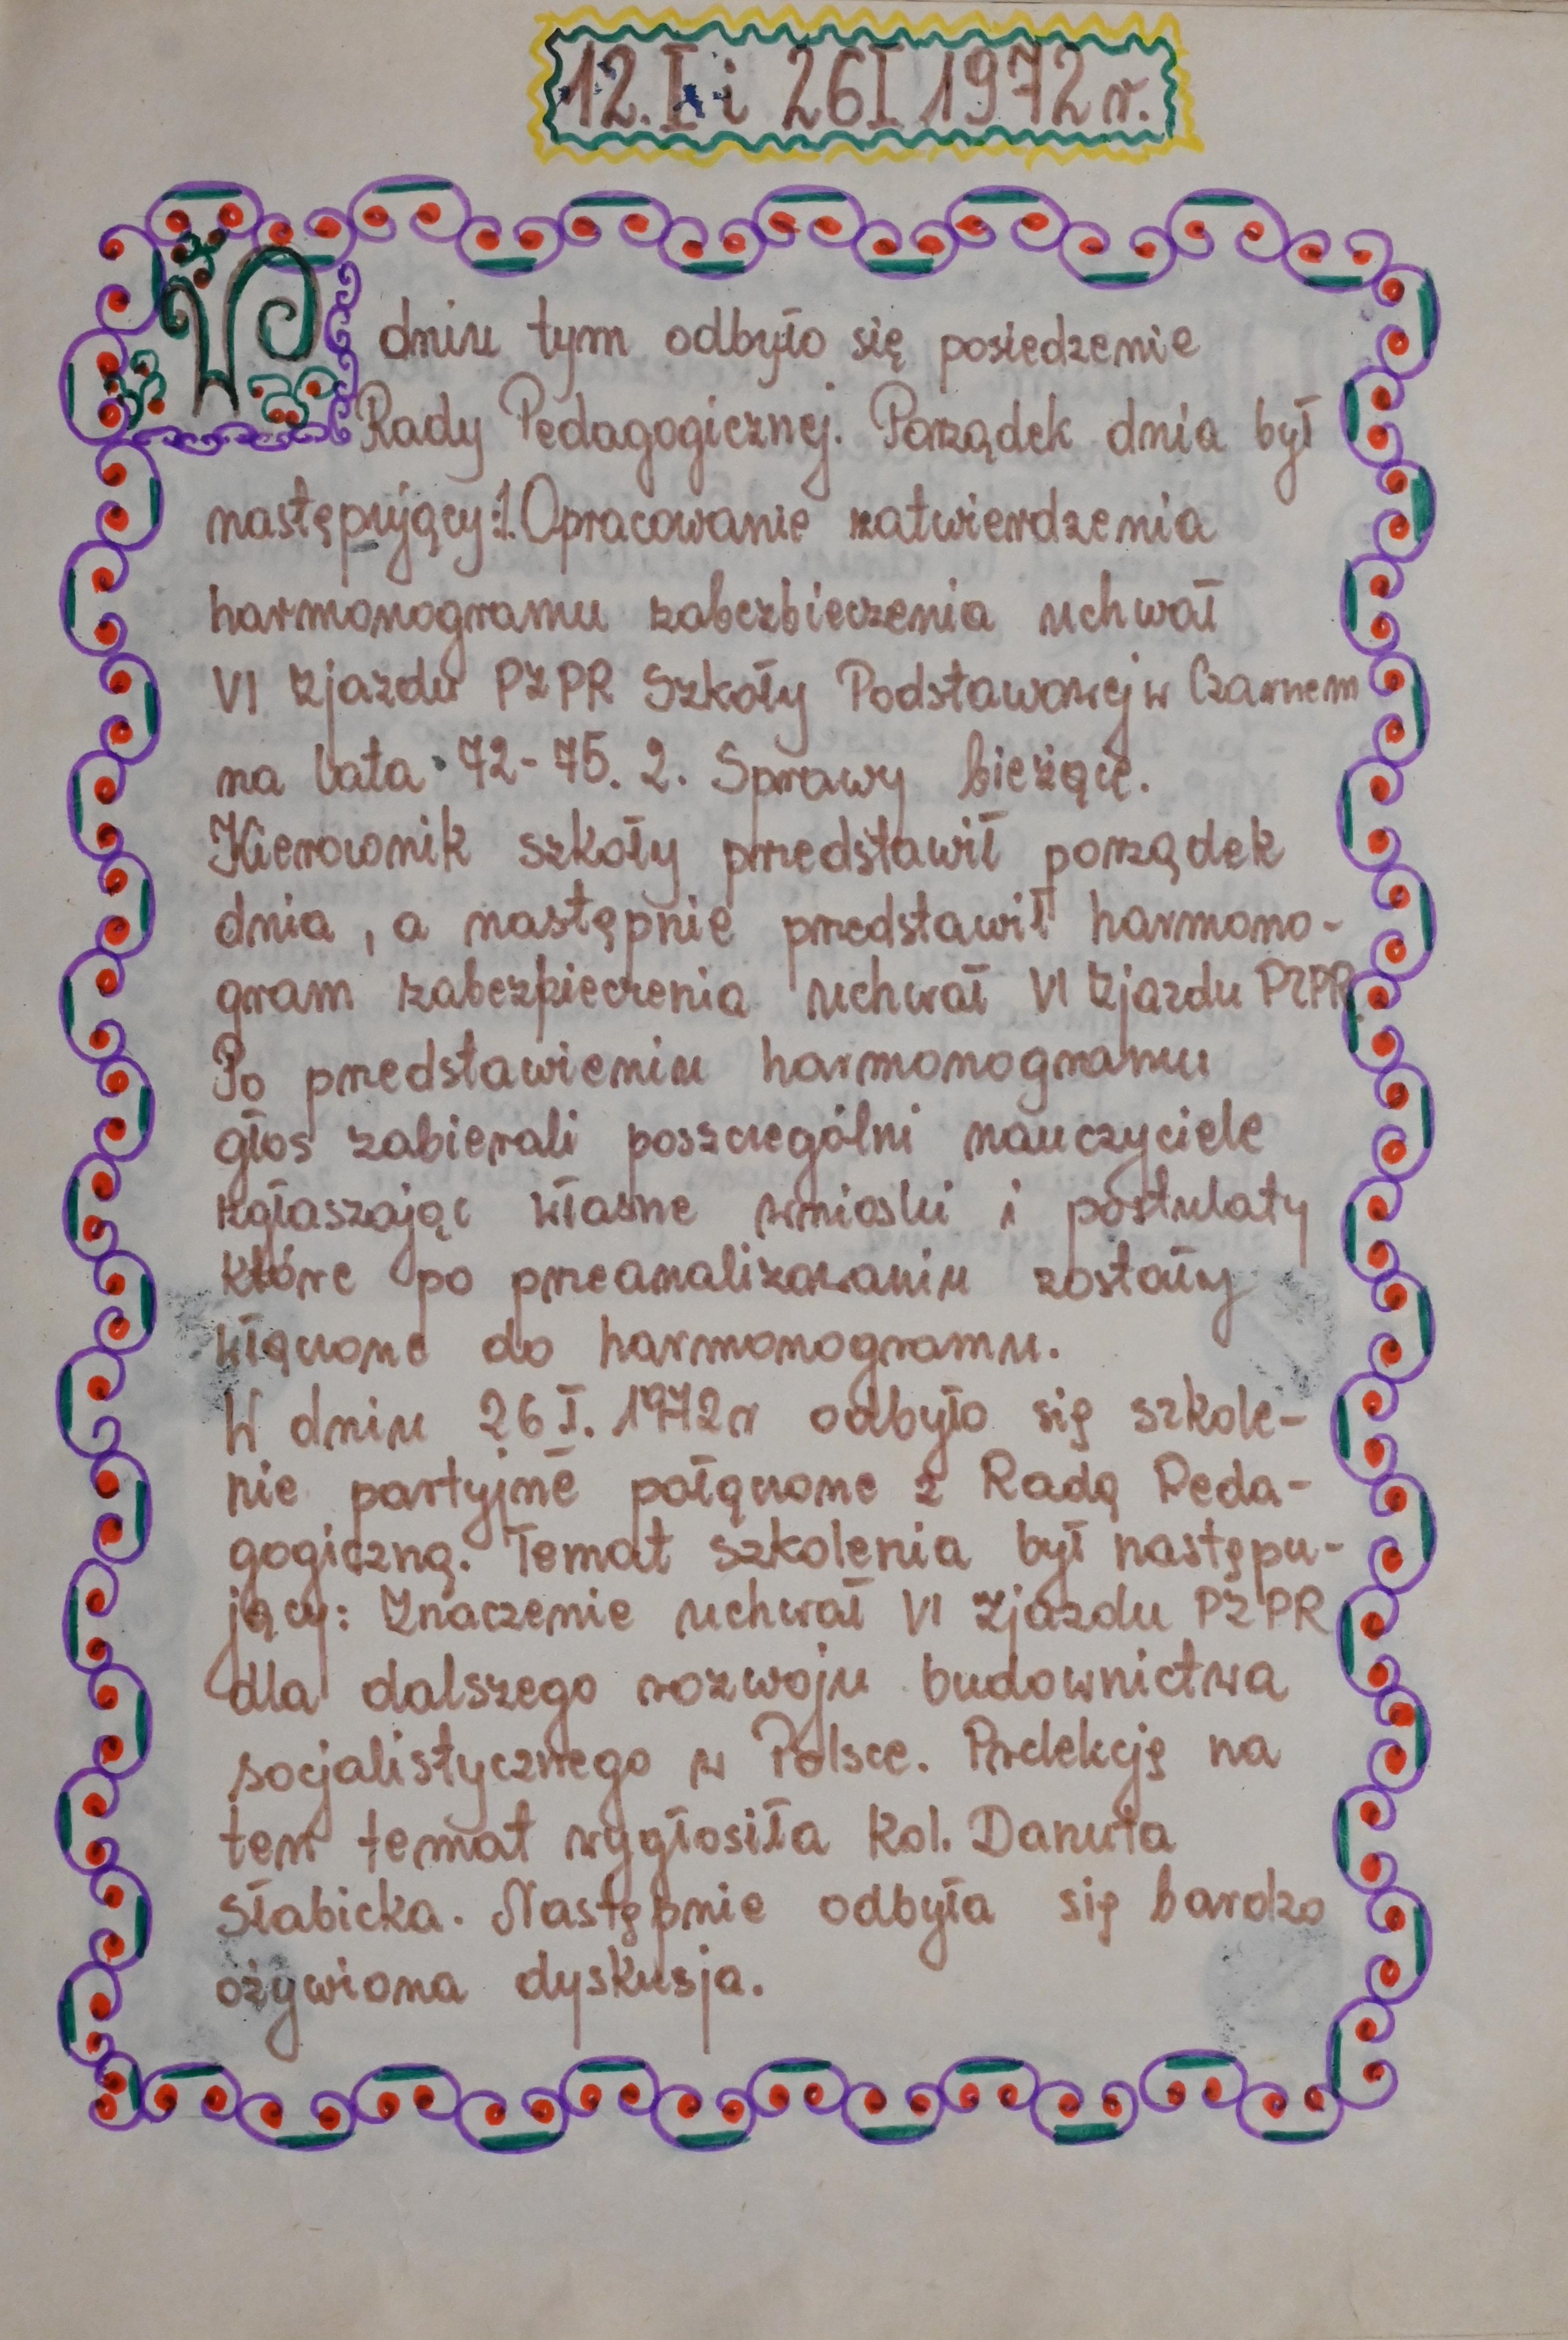 12.I i 26I 1972 r.
W dniu tym odbyło się posiedzenie
Rady Pedagogicznej. Porządek dnia był
następujący:1.Opracowanie zatwierdzenia
harmonogramu zabezbieczenia uchwał
VI Zjazdu PZPR Szkoły Podstawowej w Czarnem
na lata 72-75. 2. Sprawy bieżące.
Kierownik szkoły przedstawił porządek
dnia, a następnie przedstawił harmono-
gram zabezpieczenia uchwał VI Zjazdu PZPR.
Po przedstawieniu harmonogramu
głos zabierali poszczególni nauczyciele
zgłaszając własne wnioski i postulaty
które po przeanalizowaniu zostały
włączone do harmonogramu.
W dniu 26 I. 1972r odbyło się szkole-
nie partyjne połączone z Radą Peda-
gogiczną. Temat szkolenia był następu-
jący: Znaczenie uchwał VI Zjazdu PZPR
dla dalszego rozwoju budownictwa
socjalistycznego w Polsce. Prelekcję na
ten temat wygłosiła kol. Danuta
Słabicka. Następnie odbyła się bardzo
ożywiona dyskusja.